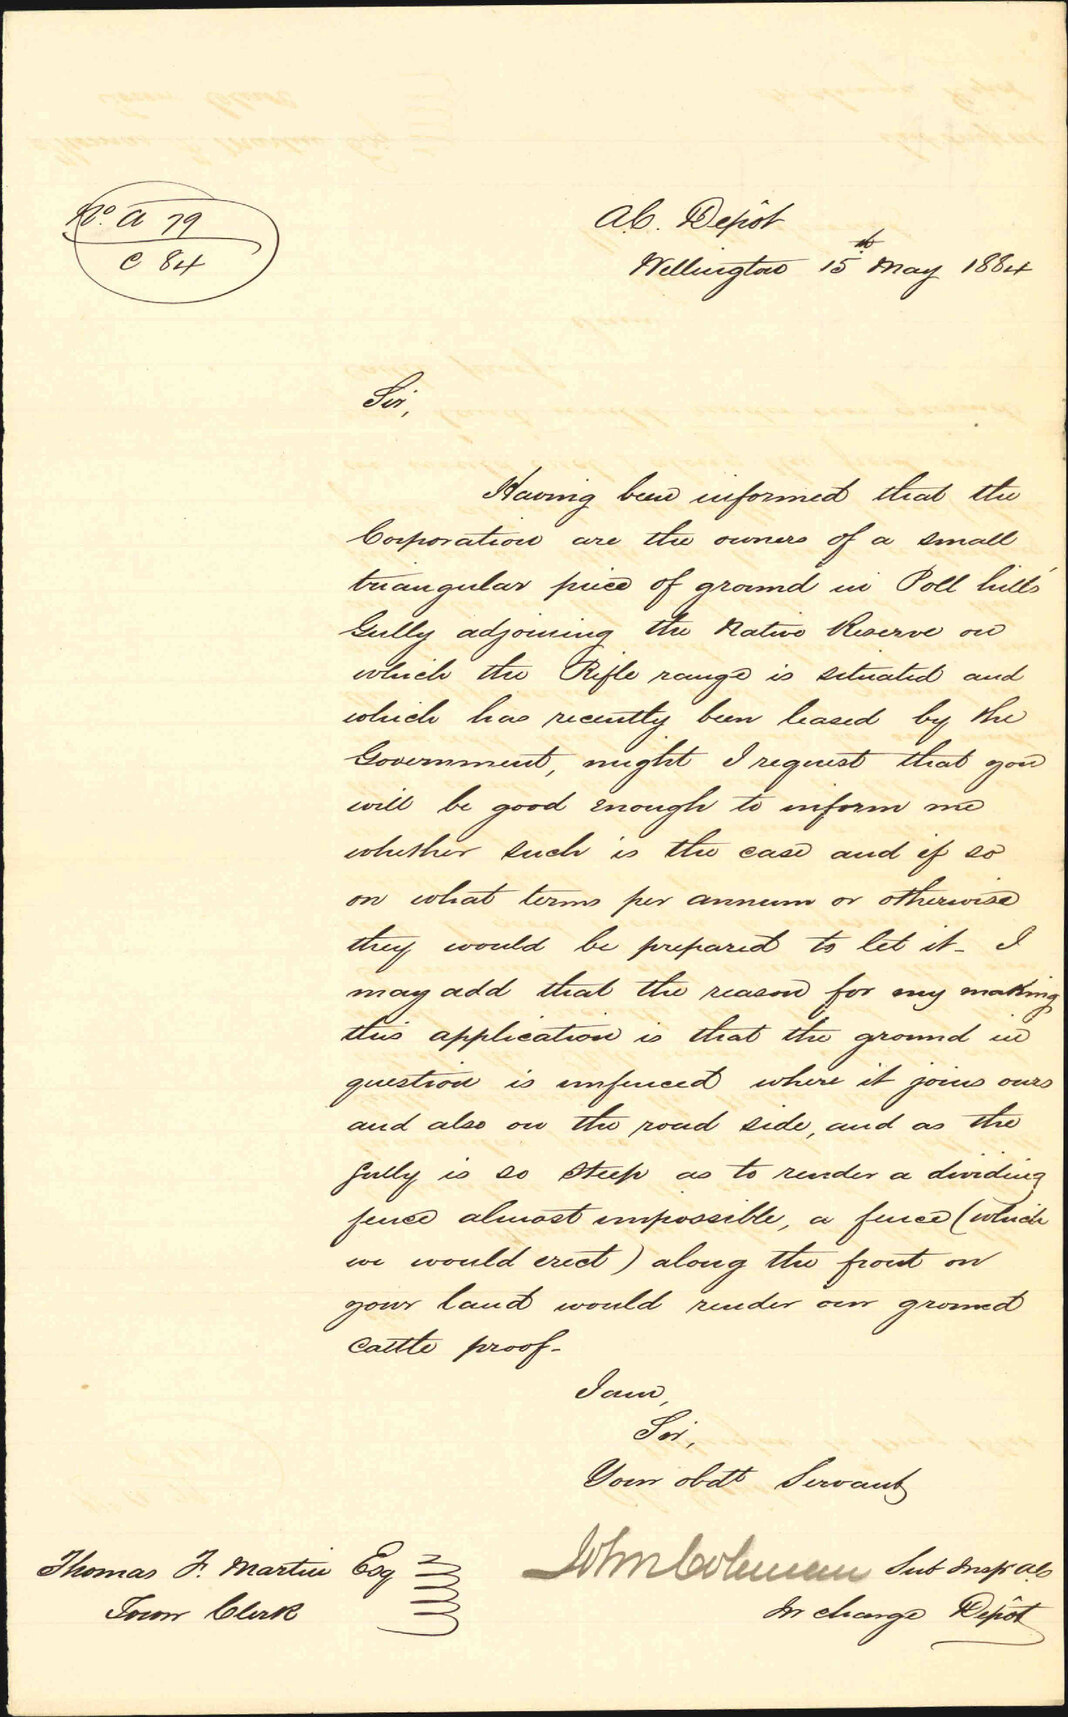 No. A 79
C 84
A.C. Depôt
Wellington 15th May 1884
Sir,
Having been informed that the
Corporation are the owners of a small
triangular piece of ground in Poll hills'
Gully adjoining the Native Reserve on
which the Rifle range is situated and
which has recently been leased by the
Government, might I request that you
will be good enough to inform me
whether such is the case and if so
on what terms per annum or otherwise
they would be prepared to let it - I
may add that the reason for my making
this application is that the ground in
question is unfenced where it joins ours
and also on the road side, and as the
gully is so steep as to render a dividing
fence almost impossible, a fence (which
we would erect) along the front on
your land would render our ground
cattle proof -
I am,
Sir,
Your obdt Servant
John Coleman Sub Insp A.C.
In charge Depôt
Thomas F. Martin Esq
Town Clerk